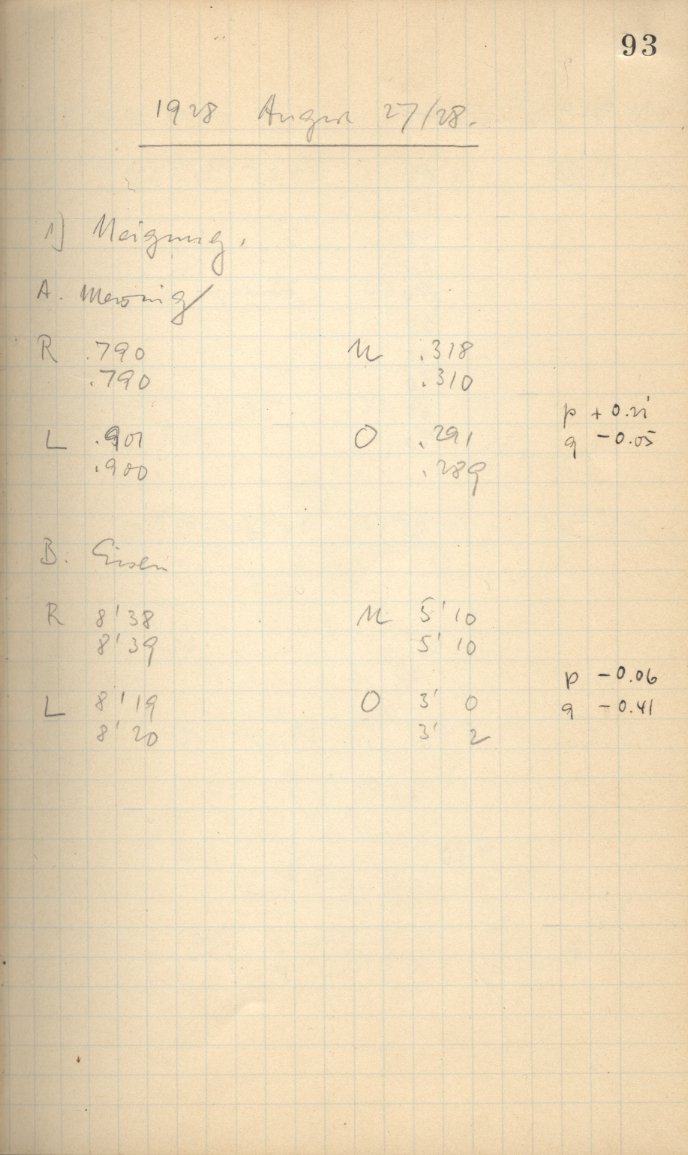 93
1928 August 27/28.
1) Neigung.
A. Messing
R .790 U .318
.790 .310
p + 0.21
L .901 O .291 q - 0.05
.900 .289
B. Eisen
R 8' 38 U 5' 10
8' 39 5' 10
p - 0.06
L 8' 19 O 3' 0 q - 0.41
8' 20 3' 2